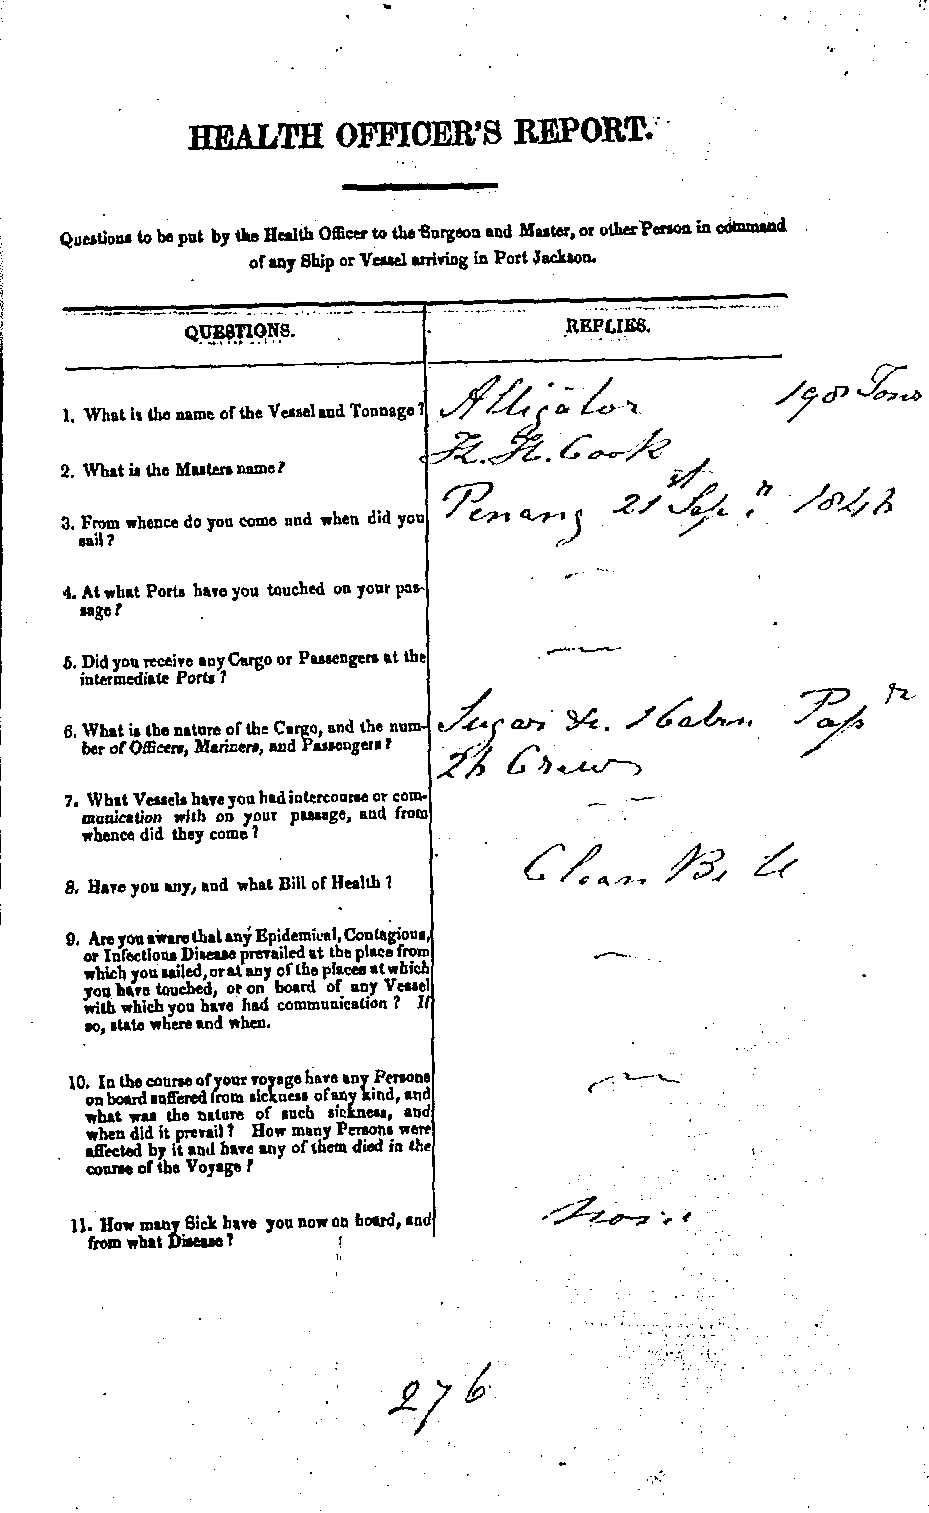 HEALTH OFFICER'S REPORT.
Questions to be put by the Health Officer to the Surgeon and Master, or other Person in command
of any Ship or Vessel arriving in Port Jackson.
QUESTIONS. REPLIES.
1. What is the name of the Vessel and Tonnage? Alligator 198 Tons
2. What is the Masters name? Cook
3. From whence do you come and when did you Penang 21st Sep.r
sail?
4. At what Ports have you touched on your pas-
sage?
5. Did you receive any Cargo or Passengers at the
intermediate Ports?
6. What is the nature of the Cargo, and the num- Sugar &c. 1 Cabin Pass r
ber of Officers, Mariners, and Passengers? Crew
7. What Vessels have you had intercourse or com-
munication with on your passage, and from
whence did they come?
8. Have you any, and what Bill of Health? Clean Bill
9. Are you aware that any Epidemical, Contagious,
or Infectious Disease prevailed at the place from
which you sailed, or at any of the places at which
you have touched, or on board of any Vessel
with which you have had communication? If
so, state where and when.
10. In the course of your voyage have any Persons
on board suffered from sickness of any kind, and
what was the nature of such sickness, and
when did it prevail? How many Persons were
affected by it and have any of them died in the
course of the Voyage?
11. How many Sick have you now on board, and None
from what Disease?
276